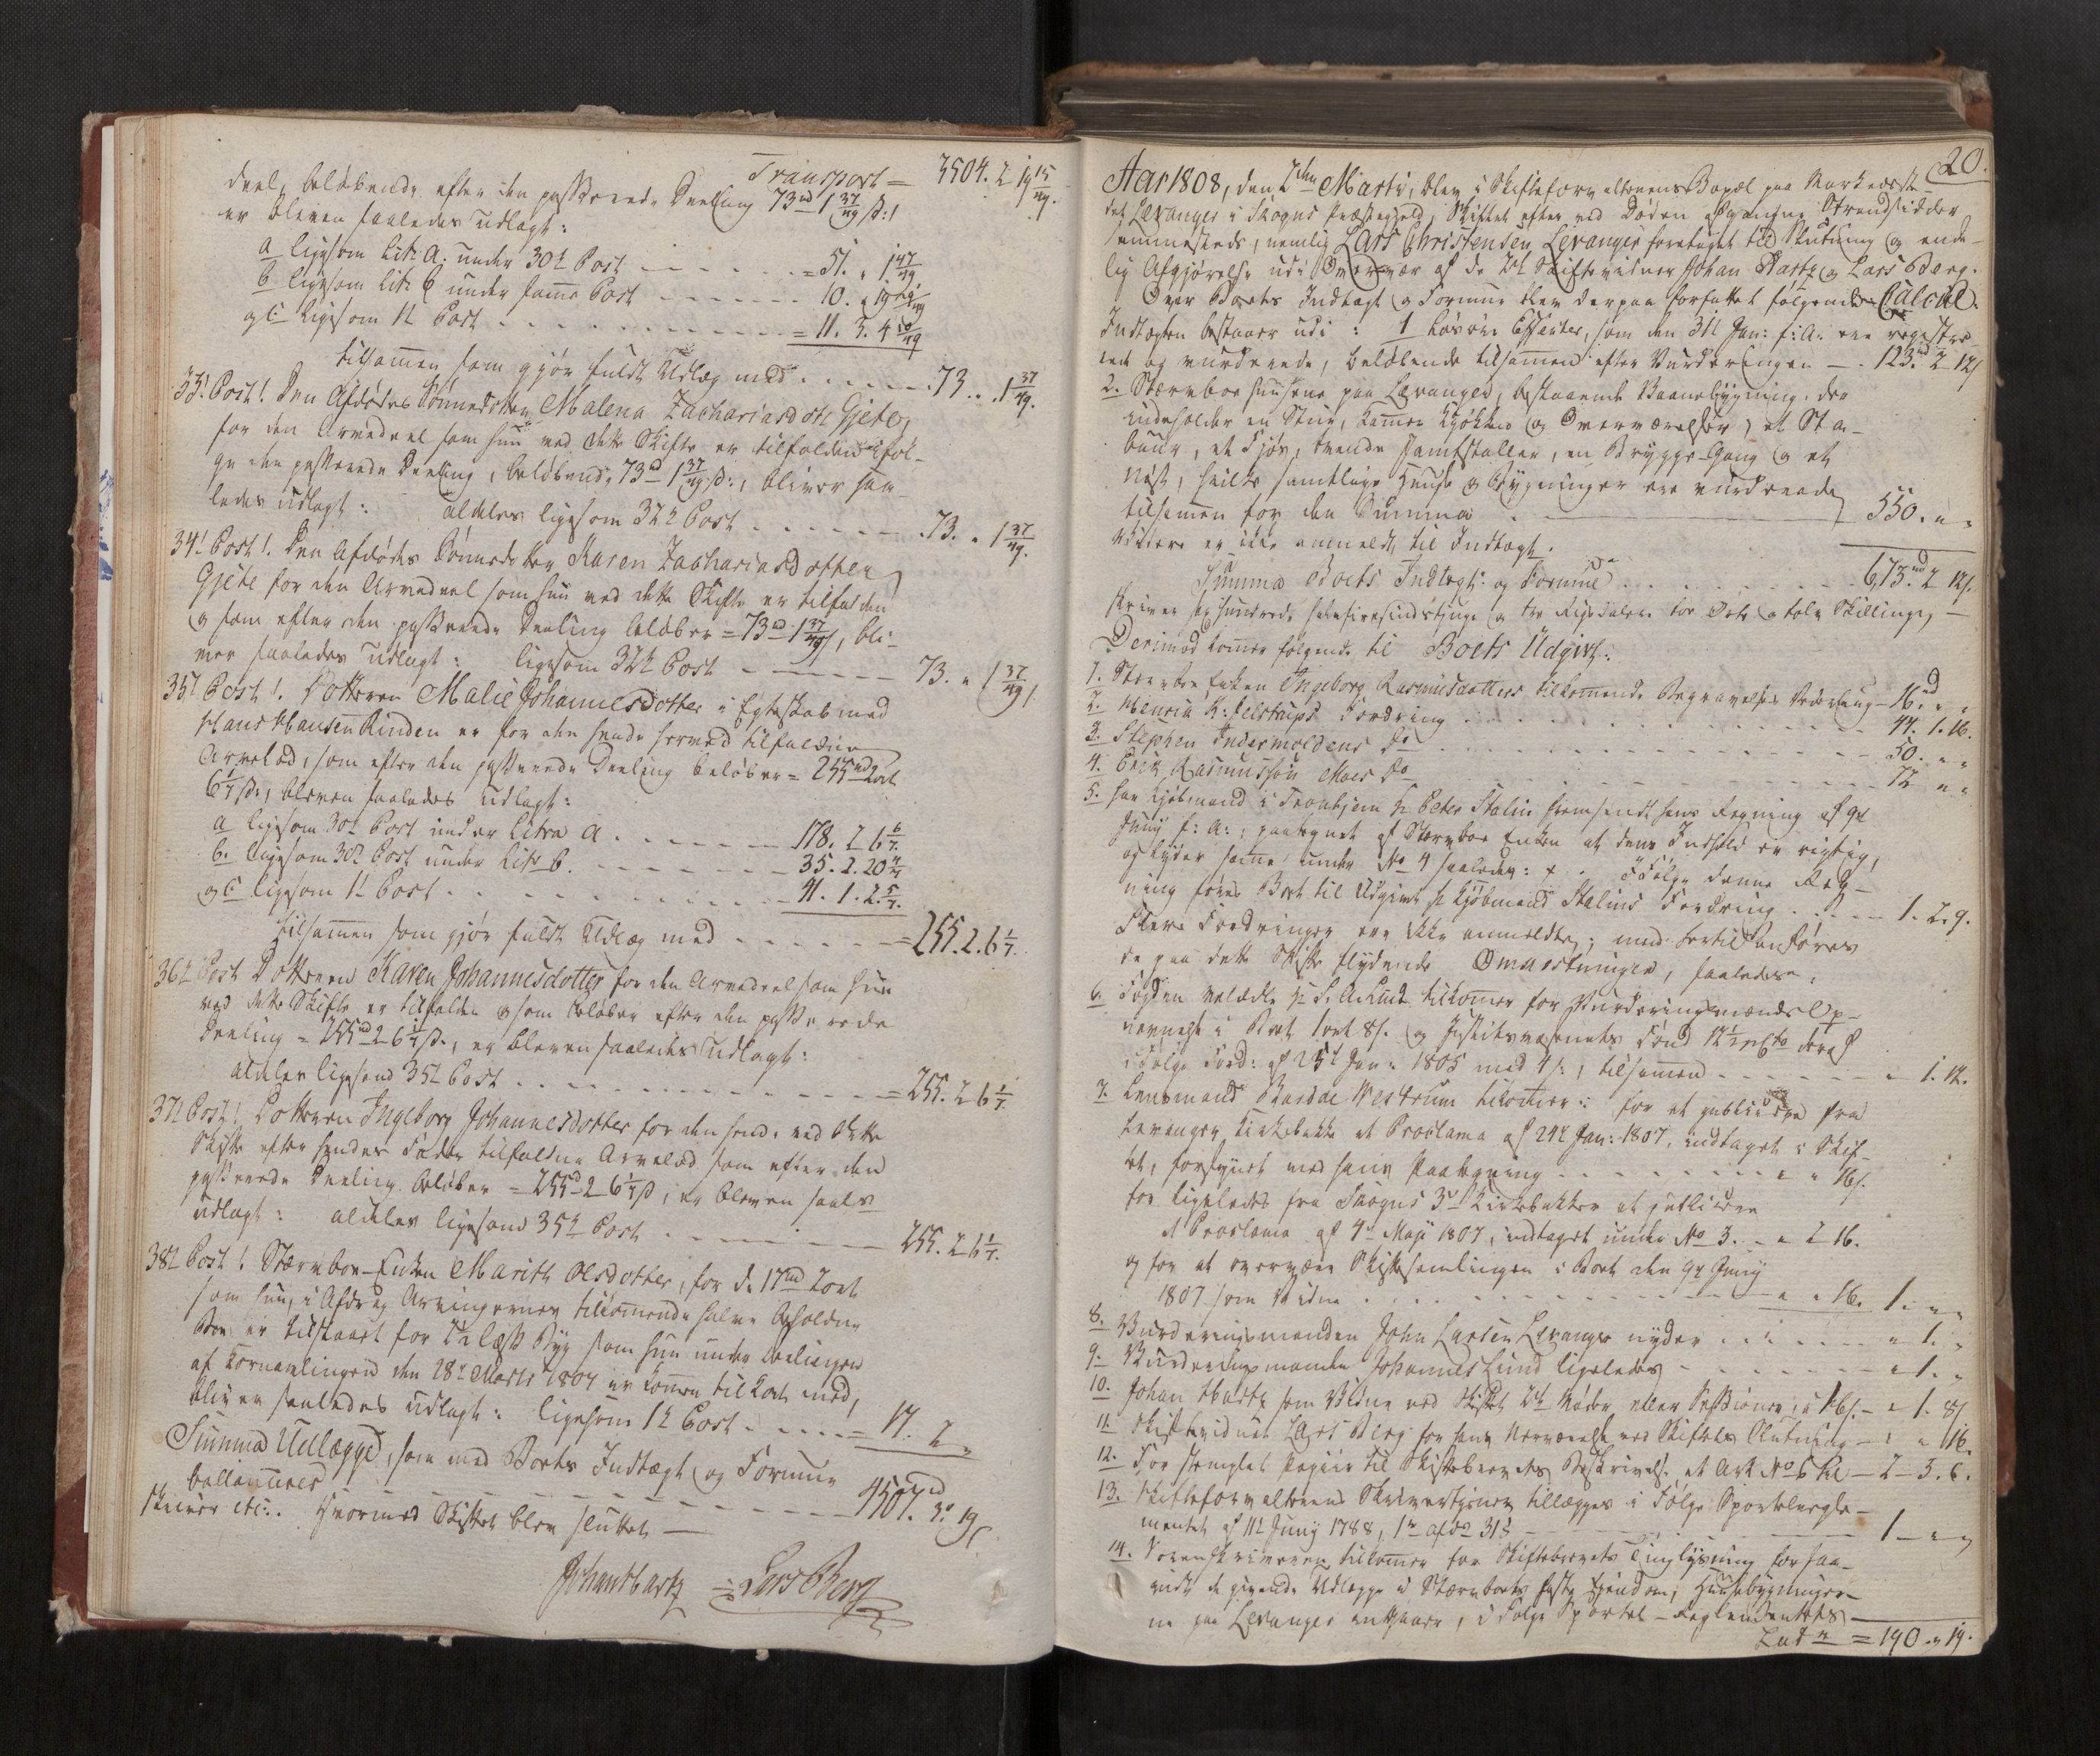 Transport = 3504. 2 19 15/49.
deel, beløbende efter den passerede Deeling 73 rd 1 37/49 s:,
er bleven saaledes udlagt:
a ligesom Litr. A. under 30te Post = 51. " 1 47/49
b ligesom Litr. b under samme Post 10. "
og c. ligesom 1te Post = 11. 3. 4 10/49
tilsamen som gjør fuldt Udlæg med 73. " 1 37/49.
33te Post. Den Afdødes Sønnedotter Malena Zachariasdotr Gjete,
for den Arvedeel som hun ved dette Skifte er tilfalden iføl-
ge den passerede Deeling, beløbende 73 rd 1 37/49 s:, bliver saa-
ledes udlagt: aldeles ligesom 32te Post 73. " 1 37/49.
34te Post. Den Afdødes Sønnedotter Karen Zachariasdotter
Gjete for den Arvedeel som hun ved dette Skifte er tilfalden
og som efter den passerede Deeling beløber = 73 rd 1 37/49 s, bli-
ver saaledes udlagt: ligesom 32te Post 73. " 1 37/49
35te Post. Dotteren Malie Johannesdotter i Egteskab med
Hans Hansen Rinden er for den hende herved tilfaldne
Arvelod, som efter den passerede Deeling beløber = 255 rd 2 ort
6 1/7 s:, bleven saaledes udlagt:
a ligesom 30te Post under Litra a 178. 2 6 6/7
b. ligesom 30te Post under Litr b. 35. 2. 20 4/7
og c. ligesom 1te Post 41. 1. 2. 5/7.
tilsamen som gjør fuldt Udlæg med = 255. 2. 6 1/7.
36te Post Dotteren Karen Johannesdotter for den Arvedeel som hun
ved dette Skifte er tilfalden og som beløber efter den passerede
Deeling = 255 rd 2 6 1/7 s:, er bleven saaledes udlagt:
aldeles ligesom 35te Post = 255. 2 6 1/7
37te Post. Dotteren Ingeborg Johannesdotter for den hende ved dette
Skifte efter hendes Fader tilfaldne Arvelod som efter den
passerede Deeling beløber = 255 rd 2 6 1/7 s, er bleven saal:
udlagt: aldeles ligesom 35te Post 255. 2 6 1/7.
38te Post. Stervboe-Enken Marith Olsdotter, for de 17 rd 2 ort
som hun, i Afdrag Arvingernes tilkommende halve Beholdne
Boe er tilstaaet for Byg som hun under Deelingen
af Kornavlingen den 28de Marts 1807 er kommen til kort med,
bliver saaledes udlagt: ligesom 1te Post = 17. 2 "
Summa Udlægget, som med Boets Indtægt og Formue
ballancerer 4507 rd 3 19 s
skriver etc:. Hvormed Skiftet blev sluttet —
Johan Hartz Lars Berg
20.
Aar 1808, den 2den Martii, blev i Skifteforvalterens Bopæl paa Markedsste-
det Levanger i Skogns Præstegjeld, Skiftet efter ved Døden afgangne Strandsidder
sammesteds, nemlig Lars Christensen Levanger foretaget til Slutning og ende-
lig Afgjørelse udi Overvær af de 2de Skiftevidner Johan Hartz og Lars Berg.
Over Boets Indtægt og Formue blev derpaa forfattet følgende Calcul.
Indtægten bestaaer udi: 1 Løsøre Effecter, som den 31te Jan: f: A: ere registre-
rede og vurderede, beløbende tilsamen efter Vurderingen 123 rd 2 12 s
2. Stervboe huusene paa Levanger, bestaaende Vaanebygning, der
indeholder en Stue, Kamer, Kjøkken og Overværelser, et Sta-
buur, et Fjøs, tvende Samtstaller, en Brygge-Gang og et
Nøst, hvilke samtlige Huuse og Bygninger ere vurderede
tilsamen for den Summa 550. " "
Videre er ikke anmeldt til Indtægt.
Summa Boets Indtægt og Formue 673 rd 2 12 s.
skriver sexhundrede halvfierdsindstyve og tre Rigsdaler to Ort og tolv Skilling,
Derimod komer følgende til Boets Udgivt:
1. Stervboe Enken Ingeborg Rasmusdotters tilkommende Begravelses Vederlag 16 rd " "
2. Henric K: Jelstrups Fordring 47. 1. 16.
3. Stephen Indermoldens do 50. " "
4. Erich Rasmussøn Moes do 72 " "
5. har Kjøbmand i Tronhjem Hr Peter Stalin fremsendt hans Regning af 9de
Junij f: A:, paategnet af Stervboe Enken at dens Indhold er rigtig,
og lyder samme under No 4 saaledes: ÷ . Ifølge denne Reg-
ning føres Boet til Udgivt Hr Kjøbmand Stalins Fordring 1. 2. 9.
Flere Fordringer ere ikke anmeldte; med hertil anføres
de paa dette Skifte flydende Omkostninger, saaledes:
6. Fogden velædle Hr tilkomer for Vurderingsmænds Op-
nævnelse i Boet 1 ort 8 s. og Justitsvæsenets Fond 12 1/2 pCto deraf
ifølge Ford: af 25de Jan: 1805 med 4 s, tilsamen " 1. 12.
7. Lensmand Baardt Westrum tilkomer: for at publicere fra
Levanger Kirkebakke et Proclama af 24de Jan: 1807, indtaget i Skif-
tet, forsynet med hans Paategning " " 16 s.
for ligeledes fra Skogns 3de Kirkebakker at publicere
et Proclama af 4de Maji 1807, indtaget under No 3. " 2 16.
og for at overvære Skiftesamlingen i Boet den 9de Junij
1807 som Vidne " " 16. 1. " "
8. Vurderingsmanden John Larsen Levanger nyder " 1. "
9. Vurderingsmanden Johannes Lund ligeledes " 1. "
10. Johan Hartz som Vidne ved Skiftet 2de Møder eller Sessioner, á 16 s. " 1. 8 s
11. Skiftevidnet Lars Berg for hans Nærværelse ved Skiftets Slutning " " 16.
12. For stemplet Papiir til Skiftebrevets Beskrivelse, et Ark No 6 til 2 – 3. 6.
13. Skifteforvalterens Skrivertjener tillægges i Følge Sportelregle-
mentet af 11te Junij 1788, 1te Afd: 31 § 1 – " "
14. Sorenskriveren tilkomer for Skiftebrevets Tinglysning forsaa-
vidt de givende Udlægge i Stervboets faste Eiendom, Huusebygninger-
ne paa Levanger angaaer, i Følge Sportel-Reglementets
Lat = 190 " 19.